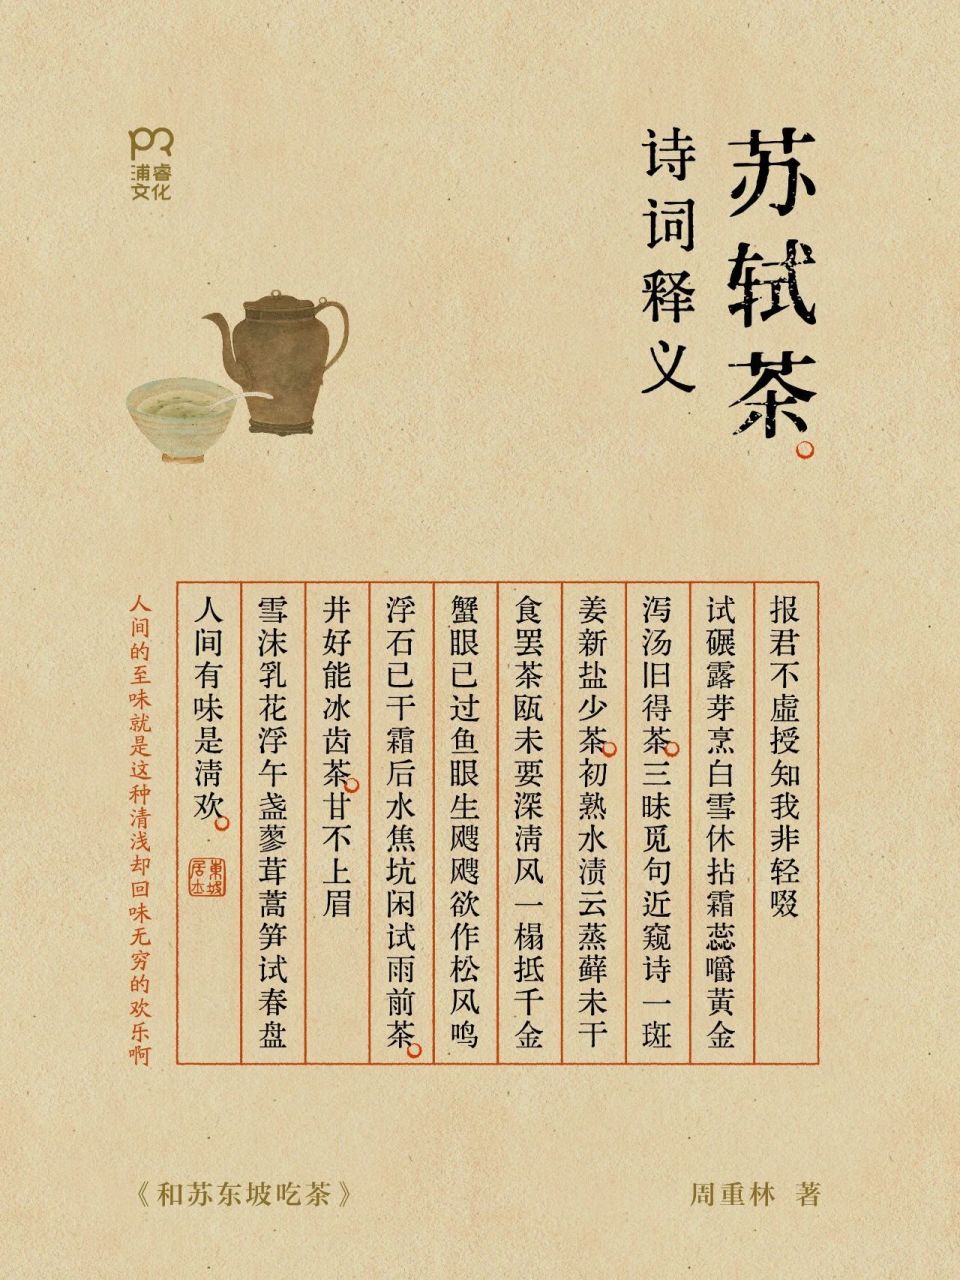 浦睿
文化
苏轼茶
诗词释义
报君不虚授知我非轻啜
试碾露芽烹白雪休拈霜蕊嚼黄金
泻汤旧得茶三昧觅句近窥诗一斑
姜新盐少茶初熟水渍云蒸藓未干
食罢茶瓯未要深清风一榻抵千金
蟹眼已过鱼眼生飕飕欲作松风鸣
浮石已干霜后水焦坑闲试雨前茶
井好能冰齿茶甘不上眉
雪沫乳花浮午盏蓼茸蒿笋试春盘
人间有味是清欢
東坡
居士
人间的至味就是这种清浅却回味无穷的欢乐啊
《和苏东坡吃茶》
周重林 著